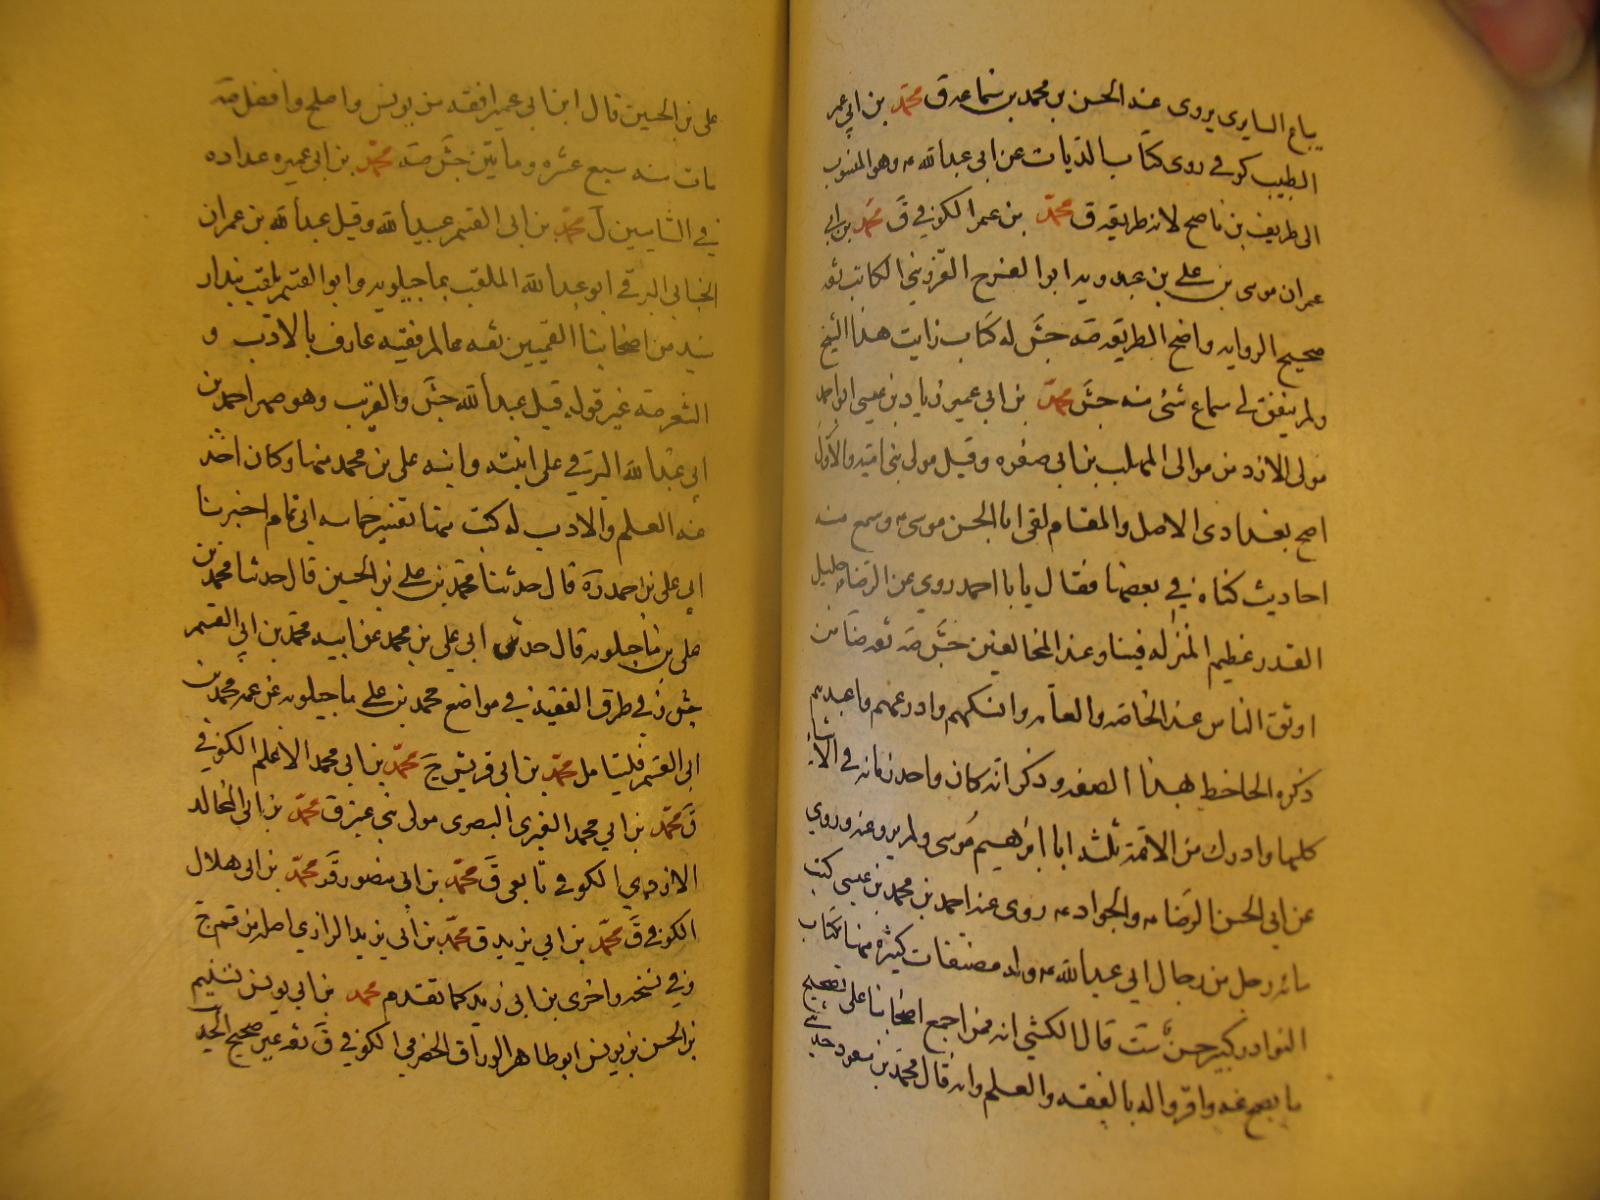 بياع السابرى يروى عنه الحسن بن محمد بن سماعه ق محمد بن ابي عمر
الطبيب كوفى روى كتاب الديات عن ابى عبدالله ع وهو المنسوب
الى ظريف بن ناصح لانه طريقه ق محمد بن عمر الكوفي ق محمد بن ابى
عمران موسى بن على بن عبدويه ابو الفرج القزوينى الكاتب ثقه
صحيح الروايه واضح الطريقه صه جش له كتاب رايت هذا الشيخ
ولم يتفق لى سماع شئ منه جش محمد بن ابى عمير زياد بن عيسى ابو احمد
مولى الازد من موالى المهلب بن ابى صفره وقيل مولى بنى اميه والاول
اصح بغدادى الاصل والمقام لقى ابا الحسن موسى ع وسمع منه
احاديث كناه في بعضها فقال يابا احمد روى عن الرضا ع جليل
القدر عظيم المنزله فينا وعند المخالفين جش صه ثقه من
اوثق الناس عند الخاصه والعامه وانسكهم واورعهم واعبدهم
ذكره الجاحظ بهذا الصفه وذكر انه كان واحد زمانه فى الاشياء
كلها وادرك من الائمه ثلثه ابا ابراهيم موسى ولم يرو عنه وروي
عن ابي الحسن الرضا ع والجواد ع روى عنه احمد بن محمد بن عيسى كتب
مائه رجل من رجال ابي عبدالله ع وله مصنفات كثيره منها كتاب
النوادر كبير حسن ست قال الكشى انه ممن اجمع اصحابنا على تصحيح
ما يصح عنه واقروا له بالفقه والعلم وانه قال محمد بن مسعود حدثنى
على بن الحسين قال ابن ابى عمير افقه من يونس واصلح وافضل صه
مات سنه سبع عشره ومايتين جش صه محمد بن ابى عميره عداده
في الشاميين ل محمد بن ابى القسم عبيدالله وقيل عبدالله بن عمران
الجنابى البرقى ابو عبدالله الملقب بماجيلويه وابو القسم يلقب بندار
سيد من اصحابنا القميين ثقه عالم فقيه عارف بالادب و
الشعر صه غير قوله قيل عبدالله جش والغريب وهو صهر احمد بن
ابي عبدالله البرقي على ابنته وابنه على بن محمد منها وكان اخذ
عنه العلم والادب له كتب منها تفسير حماسه ابى تمام اخبرنا
ابي على بن احمد ره قال حدثنا محمد بن على بن الحسين قال حدثنا محمد بن
على بن ماجيلويه قال حدثنى ابي على بن محمد عن ابيه محمد بن ابى القسم
جش وفي طرق الفقيه في مواضع محمد بن على ماجيلويه عن عمه محمد بن
ابى القسم فليتامل محمد بن ابى قريش ج محمد بن ابى محمد الاعلم الكوفى
ق محمد بن ابي محمد البصرى مولى بنى ق محمد بن ابى المخالد
الازدي الكوفى تابعى ق محمد بن ابى منصور ق محمد بن ابى هلال
الكوفى ق محمد بن ابي يزيد ق محمد بن ابي يزيد الرازي اصله من قم ج
وفي نسخه واخرى بن ابى زيد كما تقدم محمد بن ابى يونس تسنيم
بن الحسن بن يونس ابو طاهر الوراق الحضرمي الكوفى ق ثقه عين صحيح الحديث